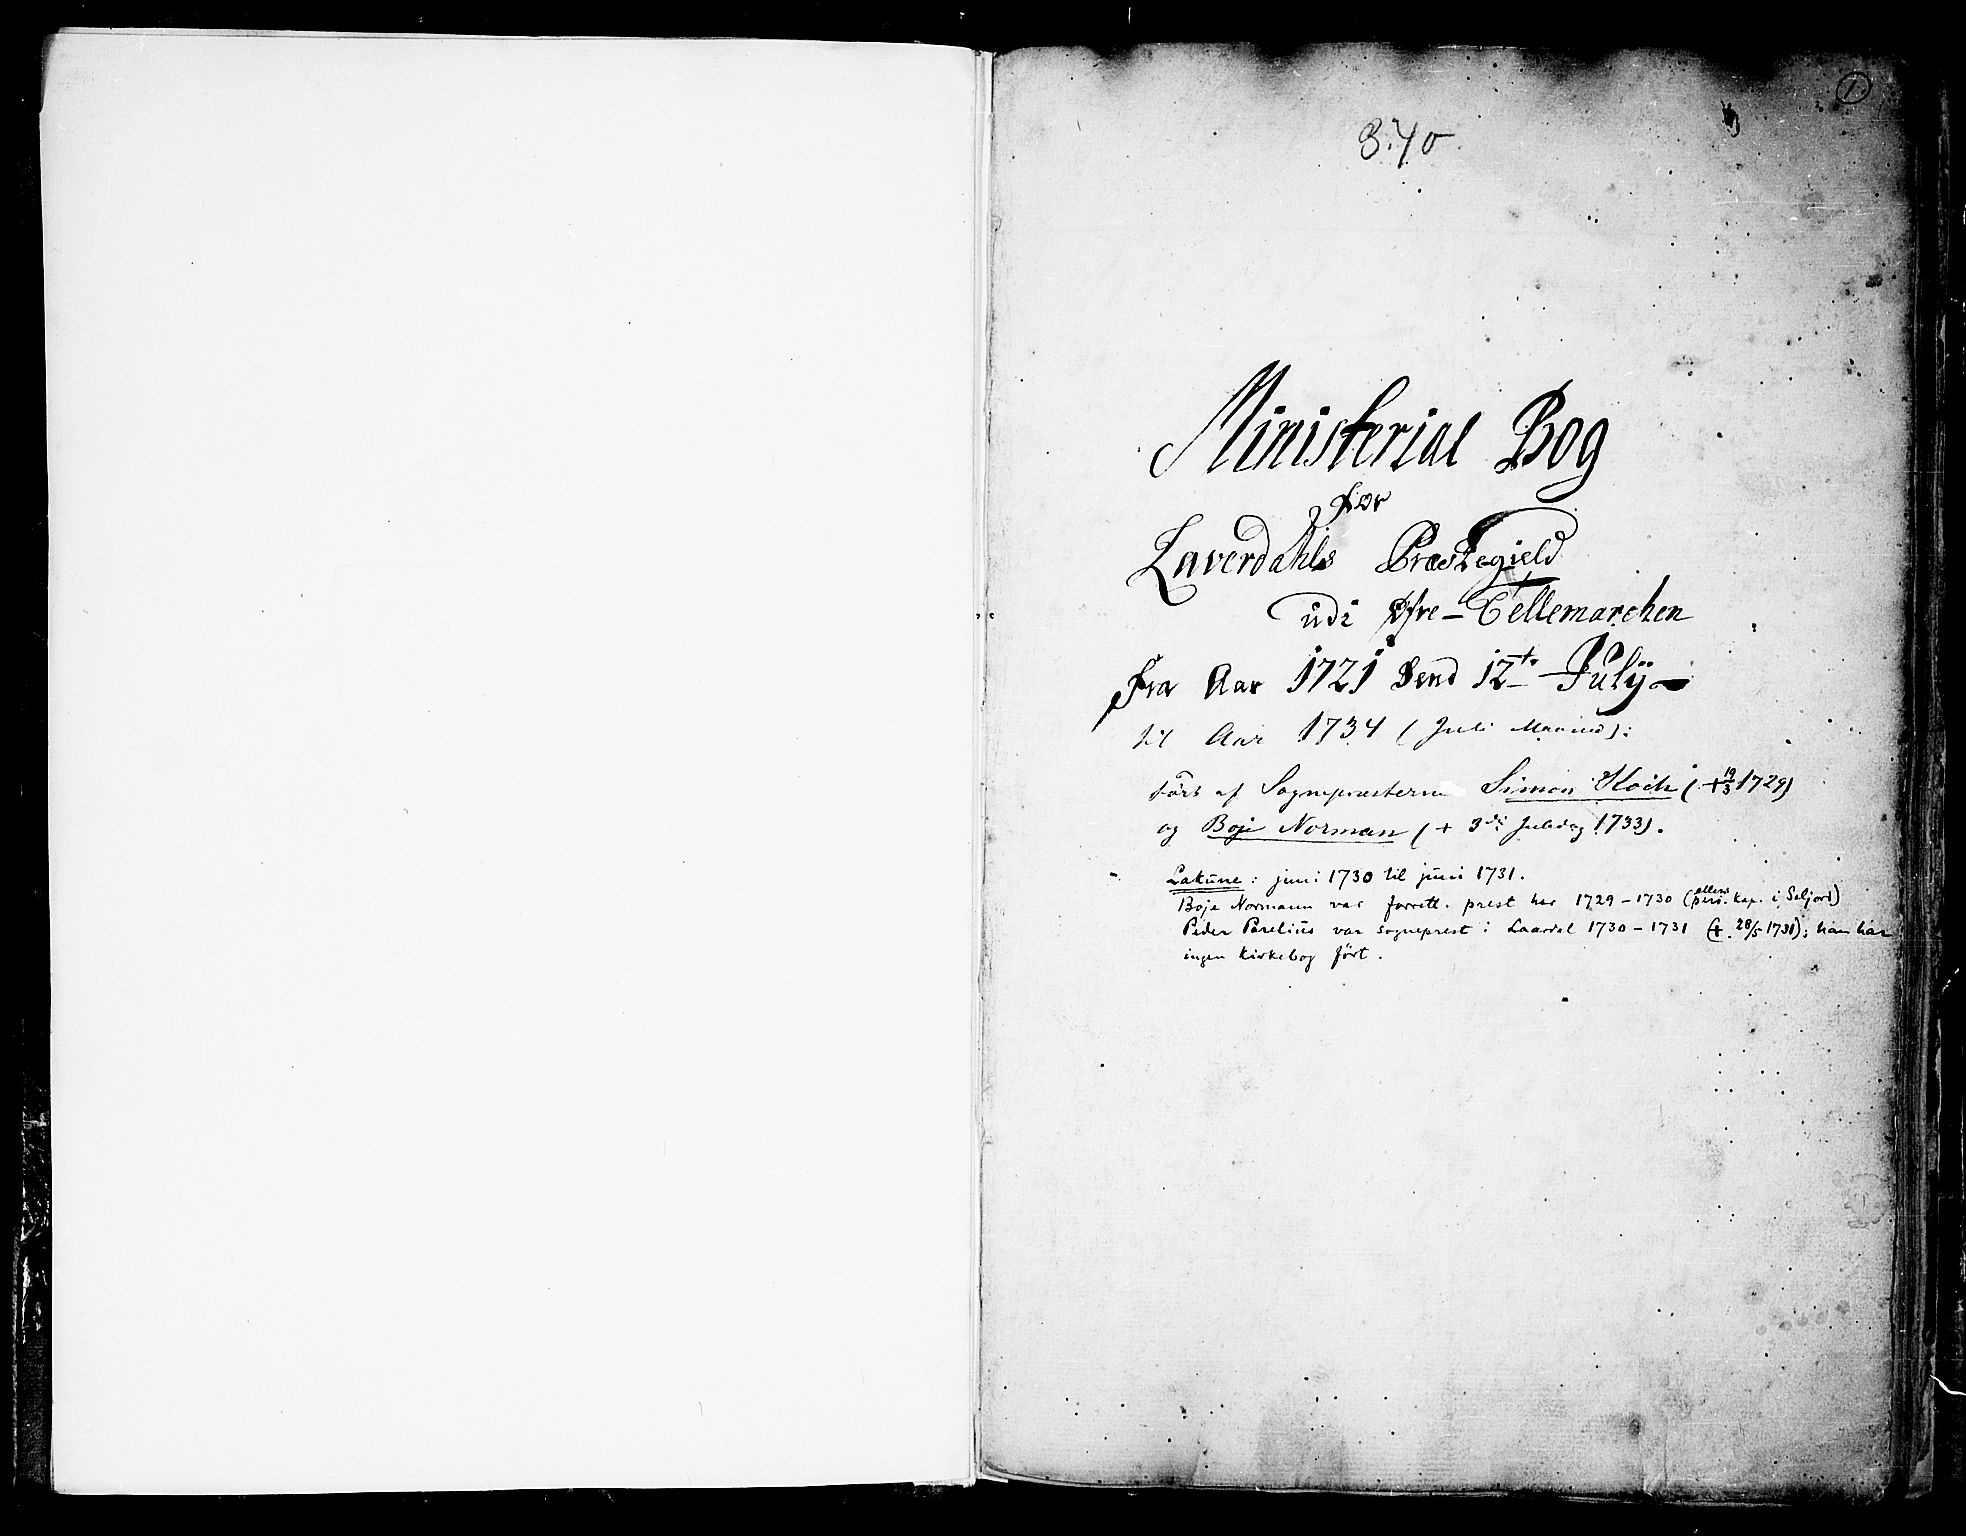 1.
3.40
Ministerial Bog
for
Laverdahls Præstegield
udi Øfre-Tellemarchen
fra Aar 1721 Dend 12te Julÿ
til Aar 1734 (Juli Maaned):
ført af Sognepræsterne Simon Koch (+ 19/3 1729)
og Boje Norman (+ 3die Juledag 1733).
Lakune: juni 1730 til juni 1731.
Boje Normann var forrett. prest her 1729-1730 (ellers pers. kap. i Seljord)
Peder Parelius var sogneprest i Laardal 1730-1731 (+ 28/5 1731); han har
ingen kirkebog ført.